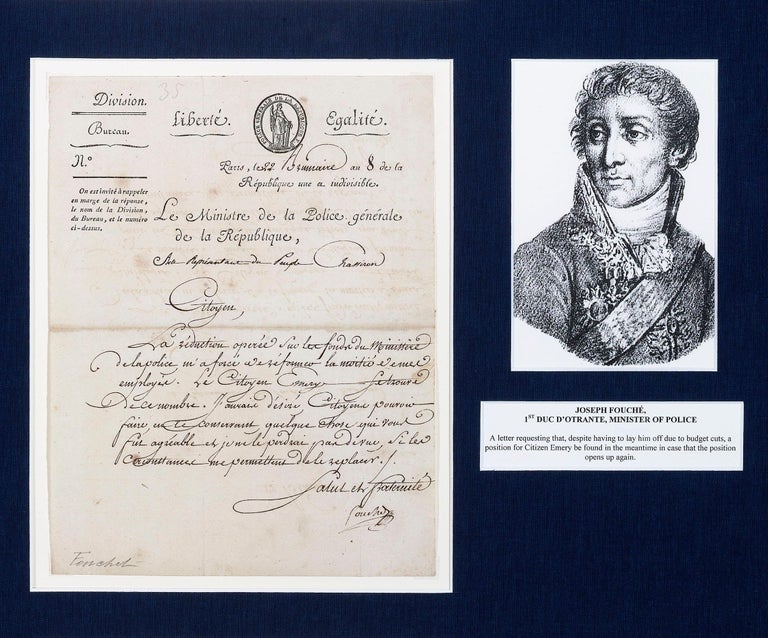 35
Division.
Bureau.
N.º
On est invité à rappeler
en marge de la réponse,
le nom de la Division,
du Bureau, et le numéro
ci-dessus.
Liberté.
Egalité.
Paris, le 22 Brumaire an 8 de la
République une & indivisible.
Le Ministre de la Police générale
de la République,
Au Représentant du Peuple Chassiron
Citoyen,
La réduction opérée sur les fonds du Ministère
de la police m'a forcé de réformer la moitié de mes
employés. Le Citoyen Emery se trouve
de ce nombre. J'aurais désiré, Citoyen pouvoir
faire en le conservant quelque chose qui vous
fut agréable et je ne le perdrai pas de vue, si les
circonstances me permettent de le replacer ./.
Salut et fraternité
Fouché
Fouchet
JOSEPH FOUCHÉ,
1ST DUC D'OTRANTE, MINISTER OF POLICE
A letter requesting that, despite having to lay him off due to budget cuts, a
position for Citizen Emery be found in the meantime in case that the position
opens up again.